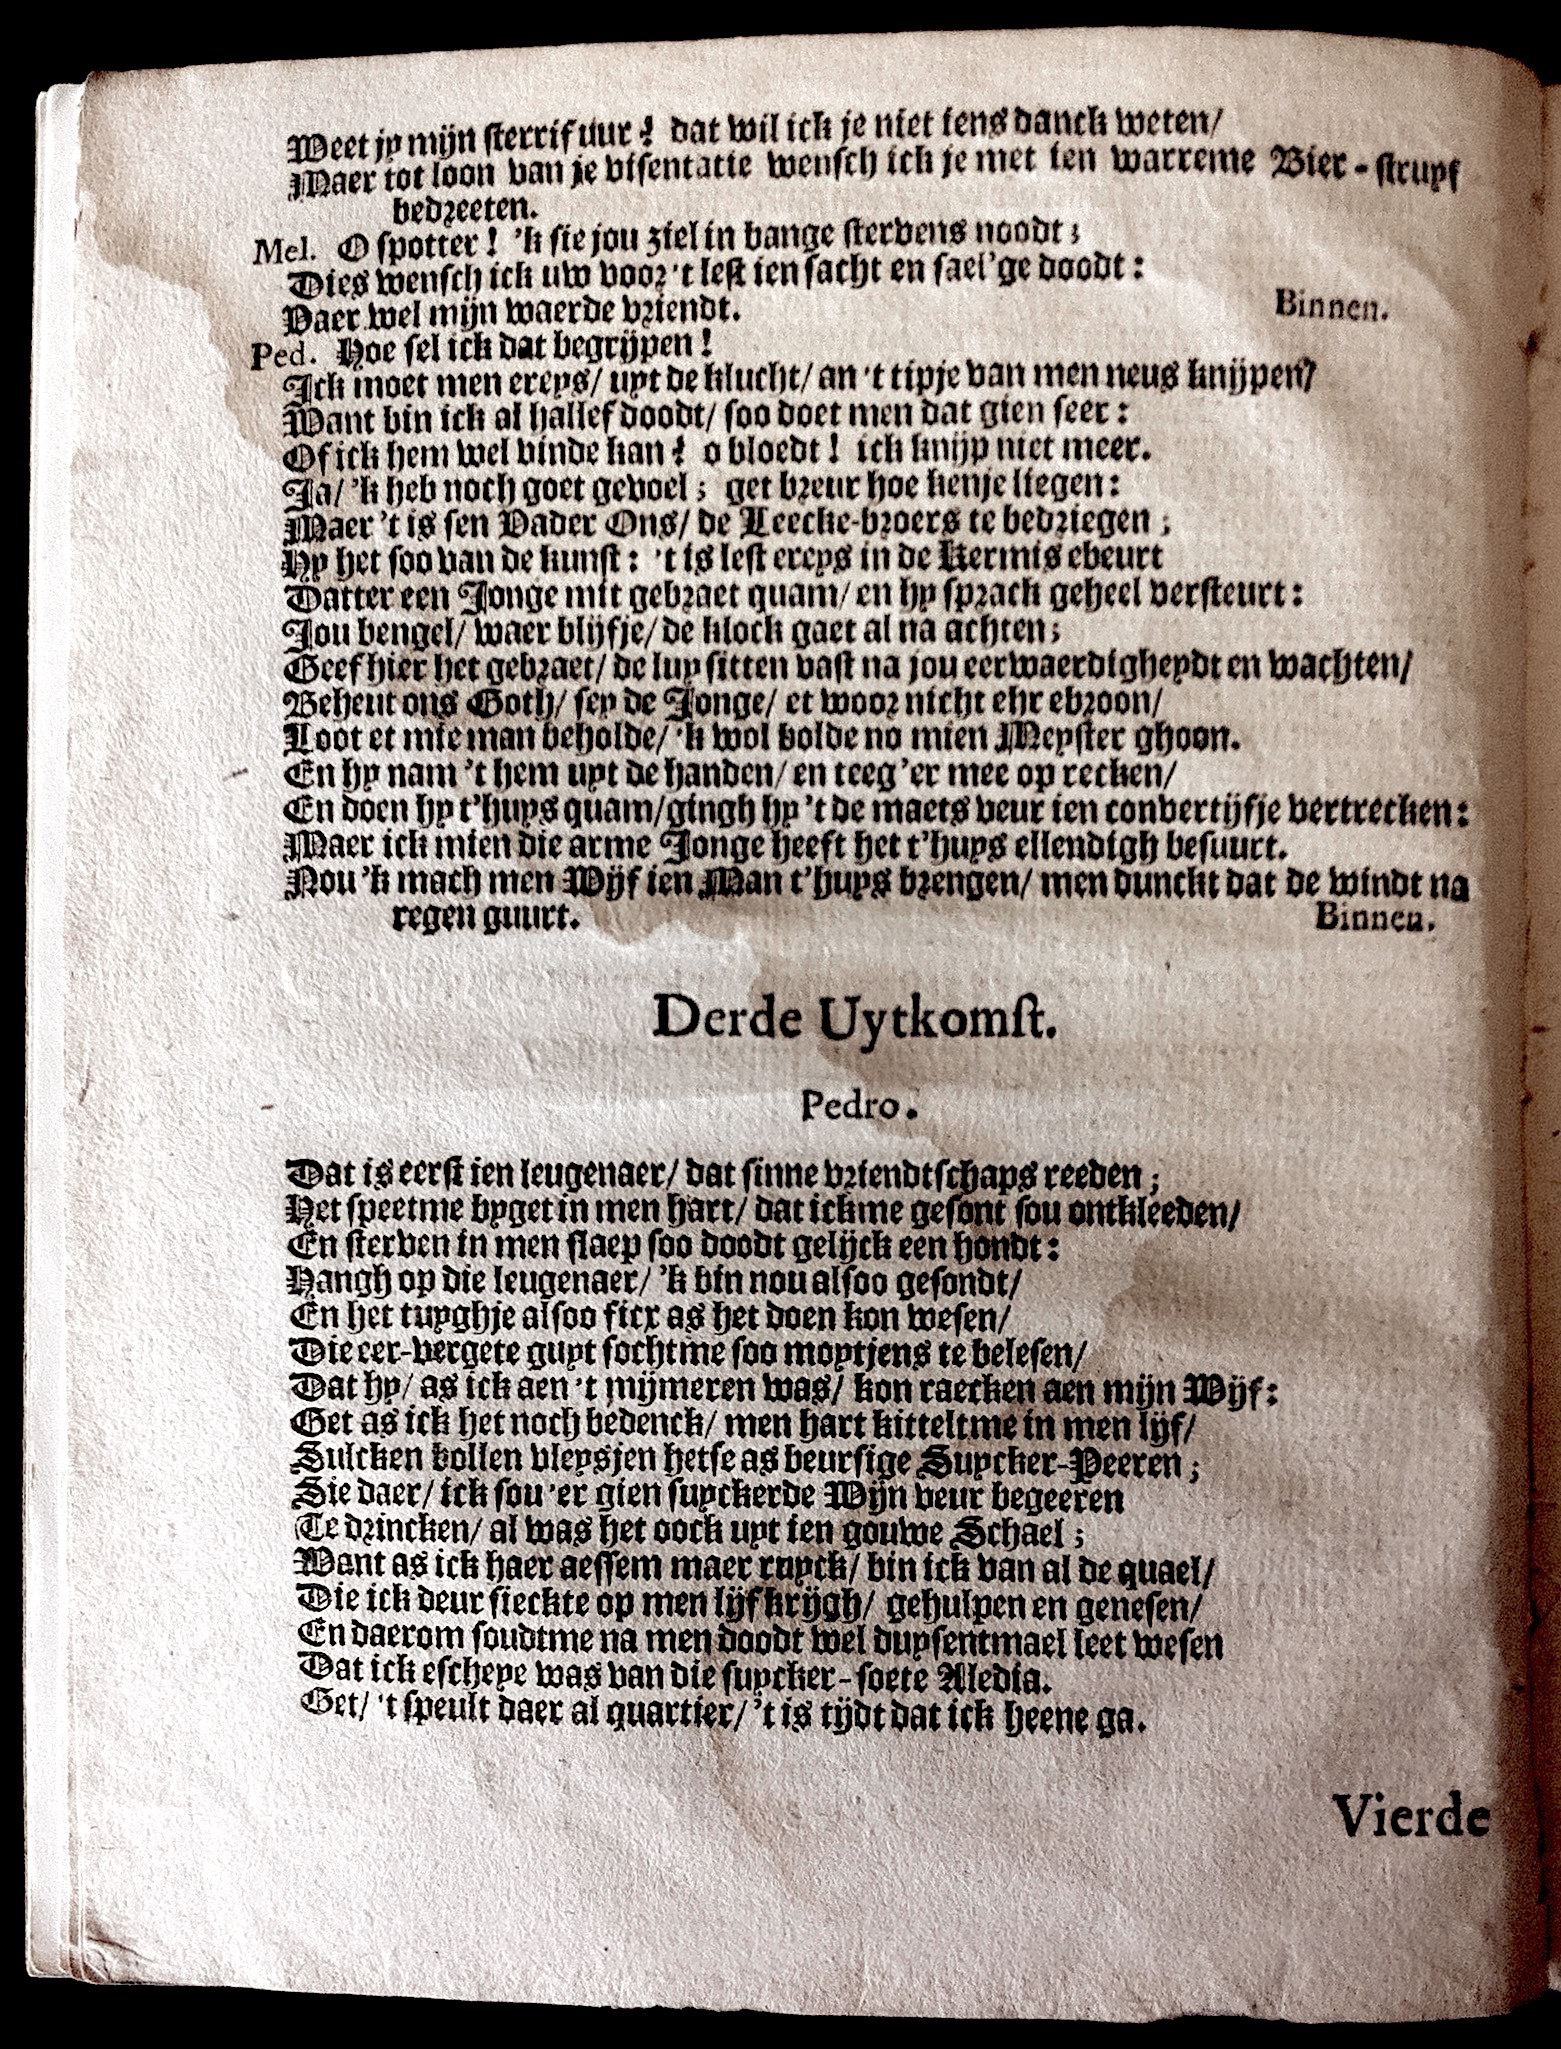 Weet jy mijn sterrif uur? dat wil ick je niet iens danck weten/
Maer tot loon van je visentatie wensch ick je met ien warreme Bier-struyf
bedreeten.
Mel. O spotter! 'k sie jou ziel in bange stervens noodt;
Dies wensch ick uw voor 't lest ien sacht en sael'ge doodt:
Vaer wel mijn waerde vriendt. Binnen.
Ped. Hoe sel ick dat begrijpen!
Ick moet men ereys/ uyt de klucht/ an 't tipje van men neus knijpen?
Want bin ick al hallef doodt/ soo doet men dat gien seer:
Of ick hem wel vinde kan? o bloedt! ick knijp niet meer.
Ja/ 'k heb noch goet gevoel; get breur hoe kenje liegen:
Maer 't is sen Vader Ons/ de Leecke-broers te bedriegen;
Hy het soo van de kunst: 't is lest ereys in de Kermis ebeurt
Datter een Jonge mit gebraet quam/ en hy sprack geheel versteurt:
Jou bengel/ waer blijfje/ de klock gaet al na achten;
Geef hier het gebraet/ de luy sitten vast na jou eerwaerdigheydt en wachten/
Beheut ons Goth/ sey de Jonge/ et woor nicht ehr ebroon/
Loot et mie man beholde/ 'k wol bolde no mien Meyster ghoon.
En hy nam 't hem uyt de handen/ en teeg 'er mee op recken/
En doen hy t'huys quam/ gingh hy 't de maets veur ien convertijfje vertrecken:
Maer ick mien die arme Jonge heeft het t'huys ellendigh besuurt.
Nou 'k mach men Wijf ien Man t'huys brengen/ men dunckt dat de windt na
regen guurt. Binnen.
Derde Uytkomst.
Pedro.
Dat is eerst ien leugenaer/ dat sinne vriendtschaps reeden;
Het speetme byget in men hart/ dat ickme gesont sou ontkleeden/
En sterven in men slaep soo doodt gelijck een hondt:
Hangh op die leugenaer/ 'k bin nou alsoo gesondt/
En het tuyghje alsoo ficx as het doen kon wesen/
Die eer-vergete guyt sochtme soo moytjens te belesen/
Dat hy/ as ick aen 't mijmeren was/ kon raecken aen mijn Wijf:
Get as ick het noch bedenck/ men hart kitteltme in men lijf/
Sulcken bollen vleysjen hetse as beursige Suycker-Peeren;
Sie daer/ ick sou 'er gien suyckerde Wijn veur begeeren
Te drincken/ al was het oock uyt ien gouwe Schael;
Want as ick haer aessem maer ruyck/ bin ick van al de quael/
Die ick deur sieckte op men lijf krijgh/ gehulpen en genesen/
En daerom soudtme na men doodt wel duysentmael leet wesen
Dat ick escheye was van die suycker-soete Aledia.
Get/ 't speult daer al quartier/ 't is tijdt dat ick heene ga.
Vierde